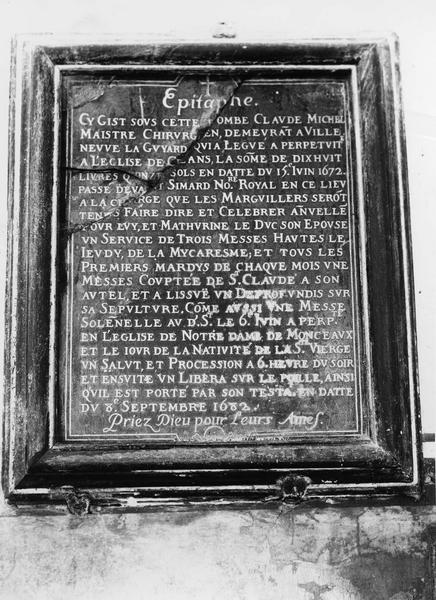 Epitaphe.
CY GIST SOVS CETTE TOMBE CLAVDE MICHEL
MAISTRE CHIRVRGIEN, DEMEVRAT A VILLE
NEVVE LA GVYARD QVI A LEGVE A PERPETVIT
A L'EGLISE DE CEANS, LA SOME DE DIXHVIT
LIVRES QUINZE SOLS EN DATTE DU 15. IVIN 1672.
PASSE DEVANT SIMARD NORE. ROYAL EN CE LIEV
A LA CHARGE QUE LES MARGVILLERS SEROT
TENUS FAIRE DIRE ET CELEBRER ANVELLE
POUR LVY, ET MATHVRINE LE DVC SON EPOVSE
VN SERVICE DE TROIS MESSES HAVTES LE
IEVDY, DE LA MYCARESME, ET TOVS LES
PREMIERS MARDYS DE CHAQVE MOIS VNE
MESSES COVPTÉE DE ST. CLAVDE A SON
AVTEL, ET A LISSVË VN DEPROFVNDIS SVR
SA SEPVLTVRE, COME AVSSI VNE MESSE
SOLENELLE AV D. ST. LE 6. IVIN A PERP.
EN L'EGLISE DE NOTRE DAME DE MONCEAVX
ET LE IOVR DE LA NATIVITÉ DE LA STE. VIERGE
VN SALVT, ET PROCESSION A 6. HEVRE DV SOIR
ET ENSVITE VN LIBERA SVR LE POILLE, AINSI
QVIL EST PORTE PAR SON TESTA. EN DATTE
DV 8E SEPTEMBRE 1682.
Priez Dieu pour Leurs Ames.